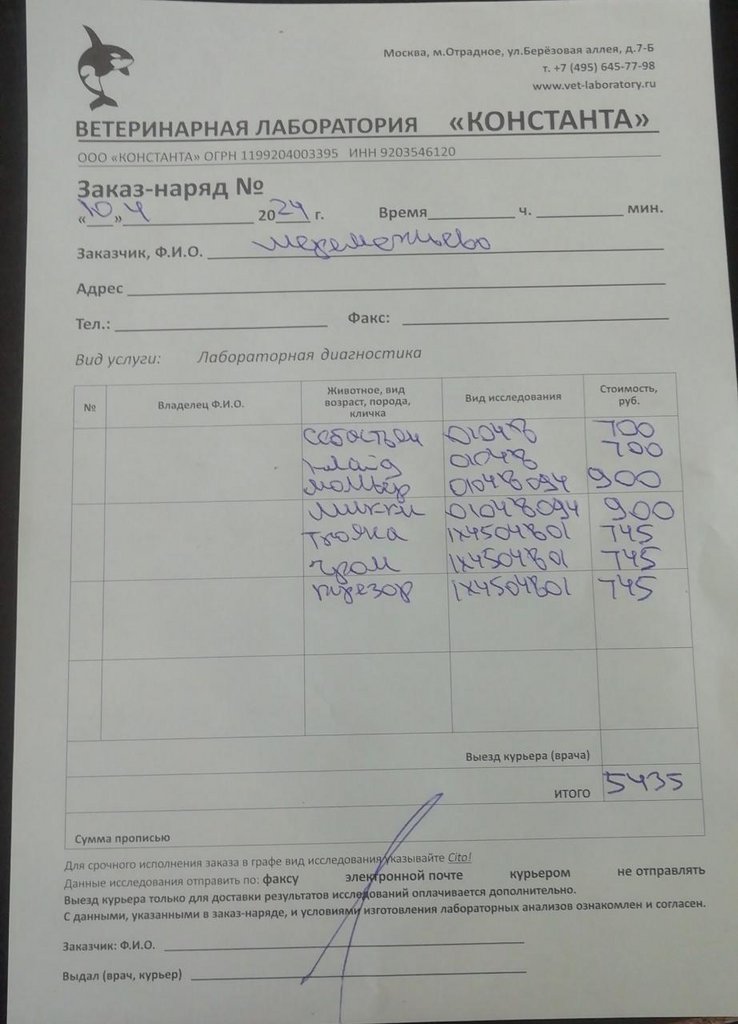 Москва, м.Отрадное, ул.Берёзовая аллея, д.7-Б
т. +7 (495) 645-77-98
www.vet-laboratory.ru
ВЕТЕРИНАРНАЯ ЛАБОРАТОРИЯ «КОНСТАНТА»
ООО «КОНСТАНТА» ОГРН 1199204003395 ИНН 9203546120
Заказ-наряд №
«10» 4 2024 г. Время ч. мин.
Заказчик, Ф.И.О. Шереметьево
Адрес
Тел.: Факс:
Вид услуги: Лабораторная диагностика
№ Владелец Ф.И.О. Животное, вид возраст, порода, кличка Вид исследования Стоимость, руб.
Себастьян 010478 700
Клайд 010478 700
Мольер 010478094 900
Микки 010478094 900
1х4504801 745
Гром 1х4504801 745
1х4504801 745
Выезд курьера (врача)
ИТОГО 5435
Сумма прописью
Для срочного исполнения заказа в графе вид исследования указывайте Cito!
Данные исследования отправить по: факсу электронной почте курьером не отправлять
Выезд курьера только для доставки результатов исследований оплачивается дополнительно.
С данными, указанными в заказ-наряде, и условиями изготовления лабораторных анализов ознакомлен и согласен.
Заказчик: Ф.И.О.
Выдал (врач, курьер)